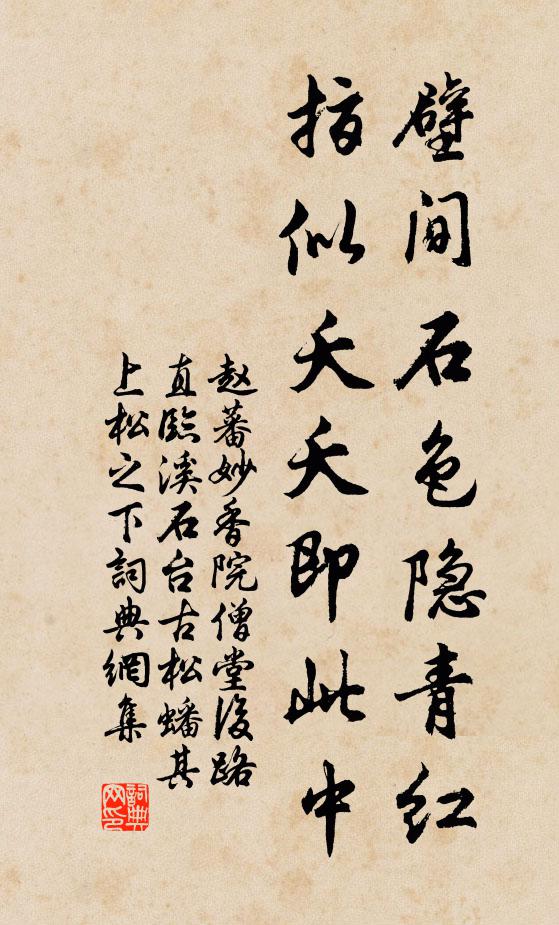 壁间石色隐青红
指似夭夭即此中
赵蕃妙香院僧堂后路
直临溪石台古松蟠其
上松之下词典网集
词典网印